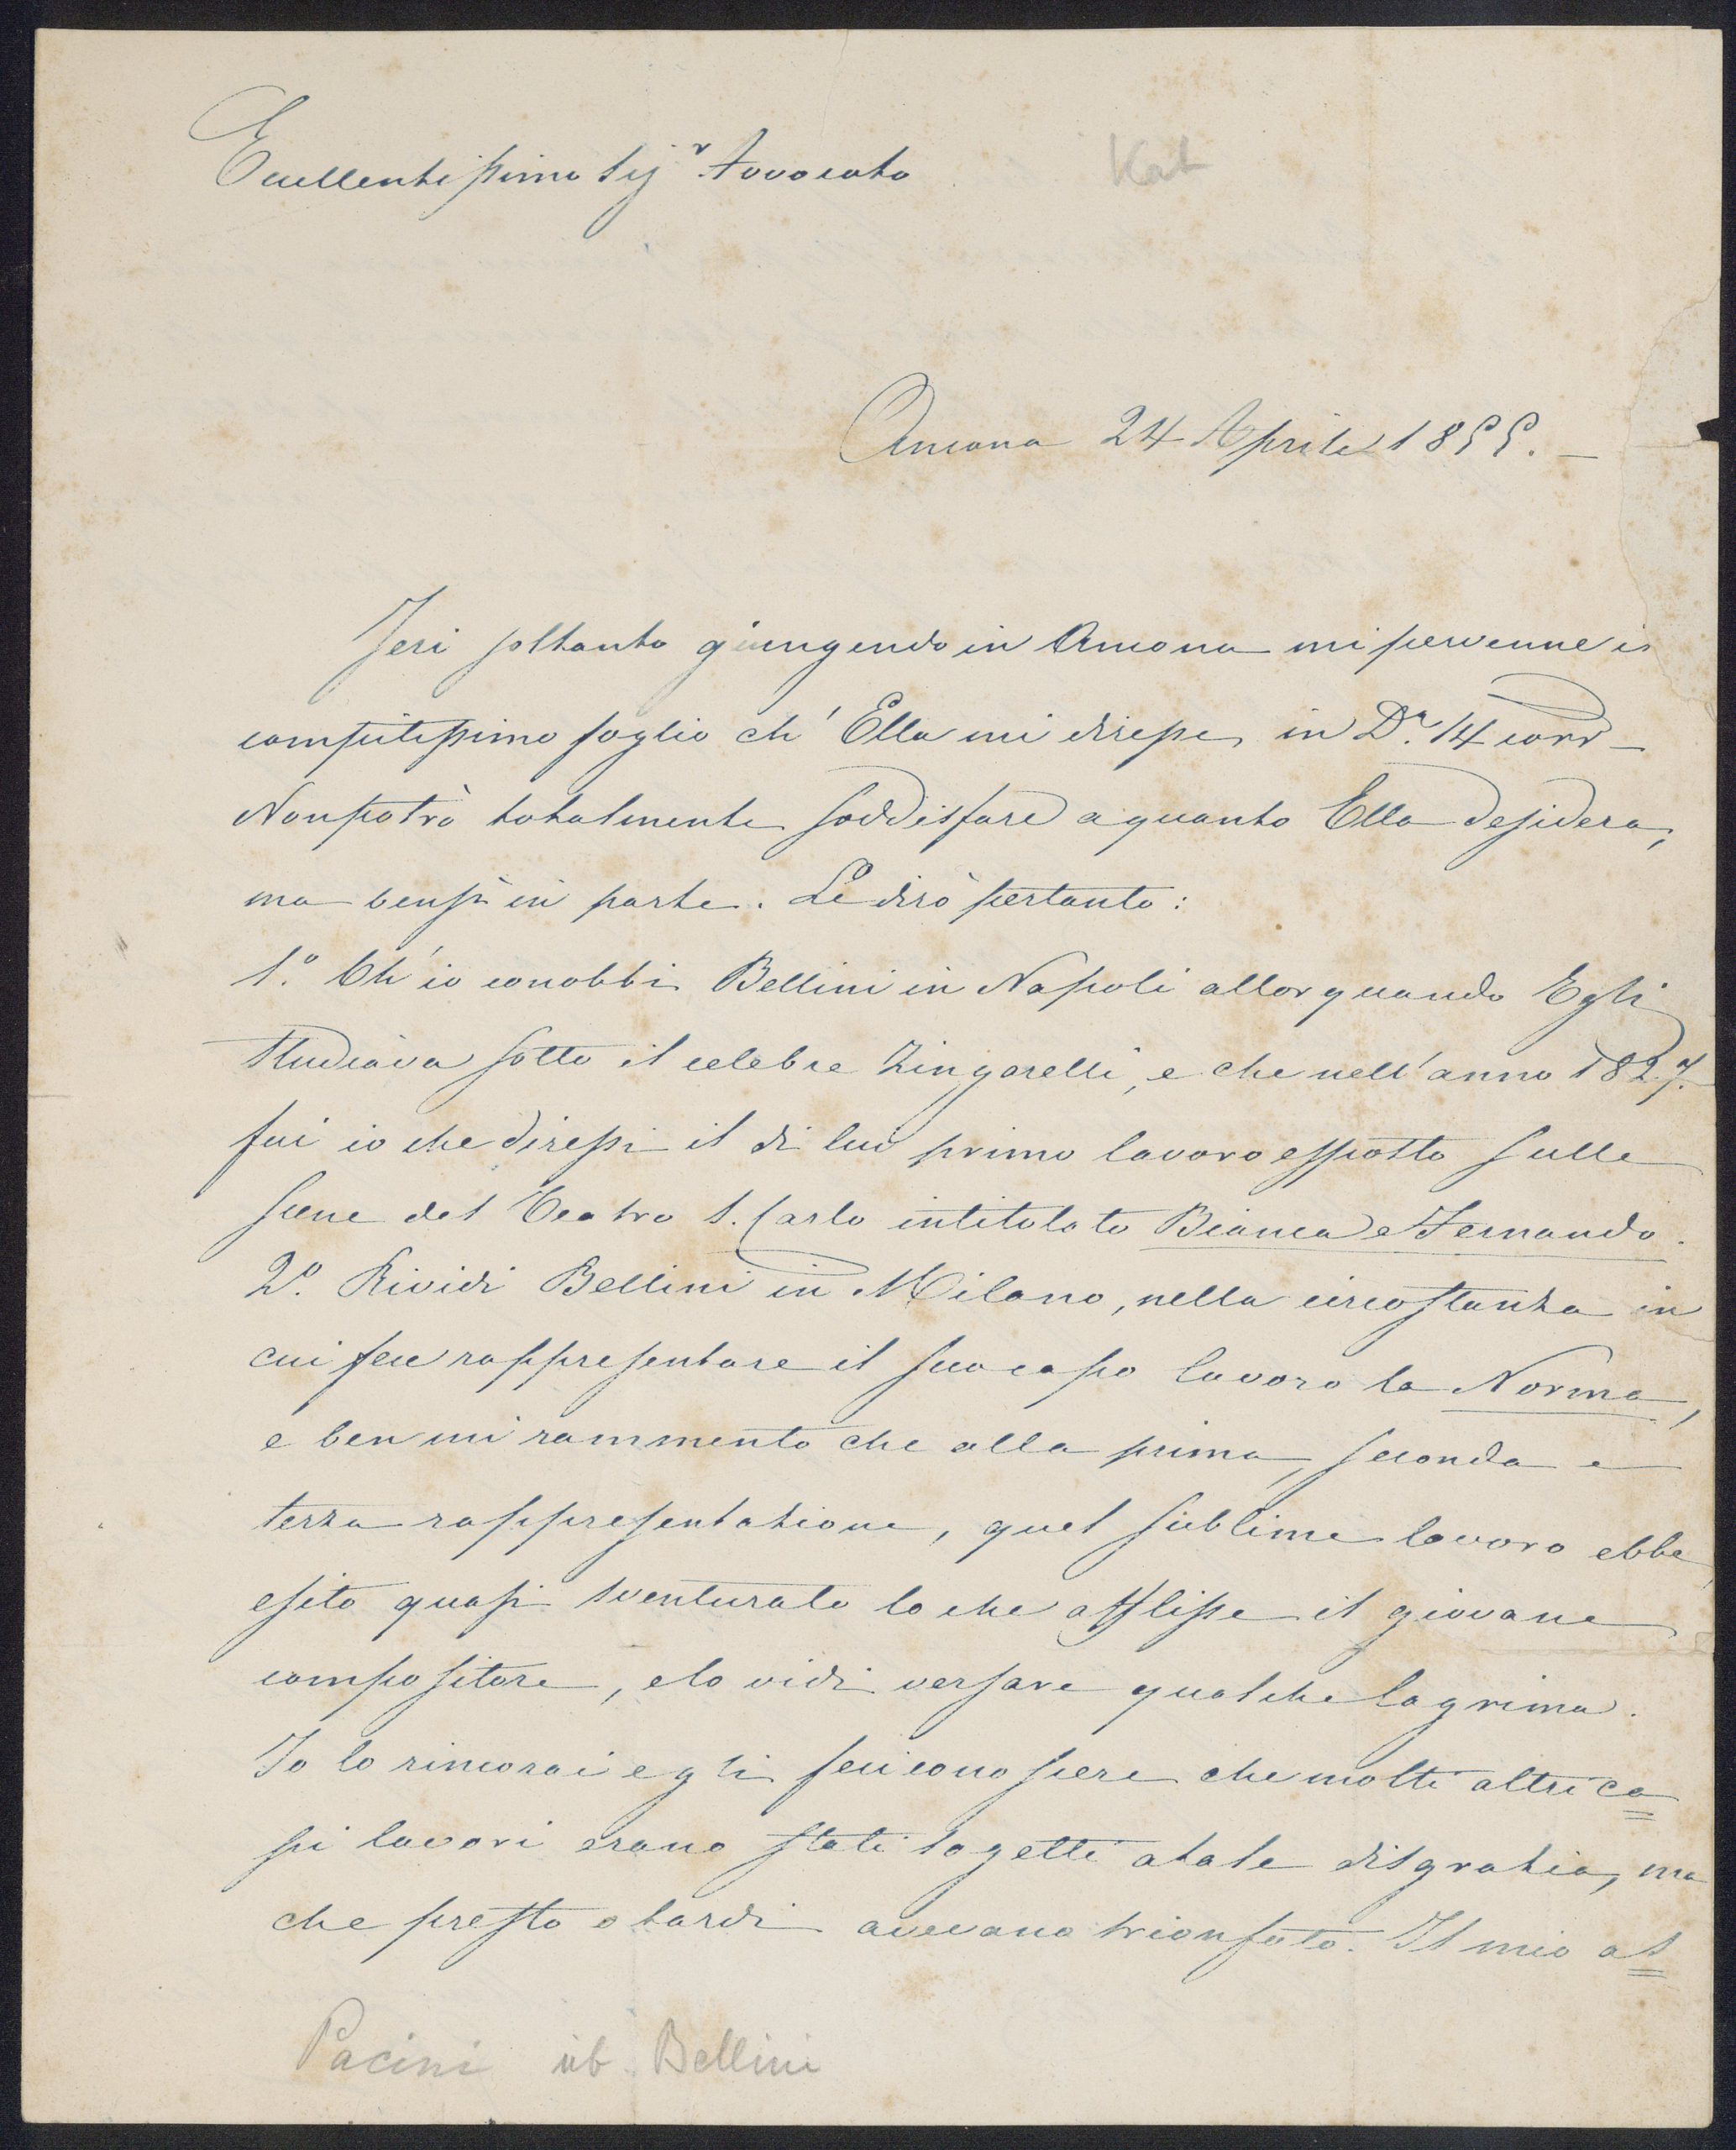 Eccellentissimo Sigr Avvocato
Kat
Ancona 24 Aprile 1855. —
Jeri soltanto giungendo in Ancona mi pervenne il
compitissimo foglio ch' Ella mi diresse in Da. 14 corr —
Non potrò totalmente soddisfare a quanto Ella desidera,
ma bensì in parte. Le dirò pertanto:
1.º Ch' io conobbi Bellini in Napoli allorquando Egli
studiava sotto il celebre Zingarelli, e che nell' anno 1827.
fui io che diressi il di lui primo lavoro esposto sulle
scene del Teatro S. Carlo intitolato Bianca e Fernando.
2.º Rividi Bellini in Milano, nella circostanza in
cui fece rappresentare il suo capo lavoro la Norma,
e ben mi rammento che alla prima, seconda e
terza rappresentazione, quel sublime lavoro ebbe
esito quasi sventurato lo che afflisse il giovane
compositore, e lo vidi versare qualche lagrima.
Io lo rincorai e gli feci conoscere che molti altri ca=
pi lavori erano stati sogetti a tale disgrazia, ma
che presto o tardi avevano trionfato. Il mio at=
Pacini üb. Bellini